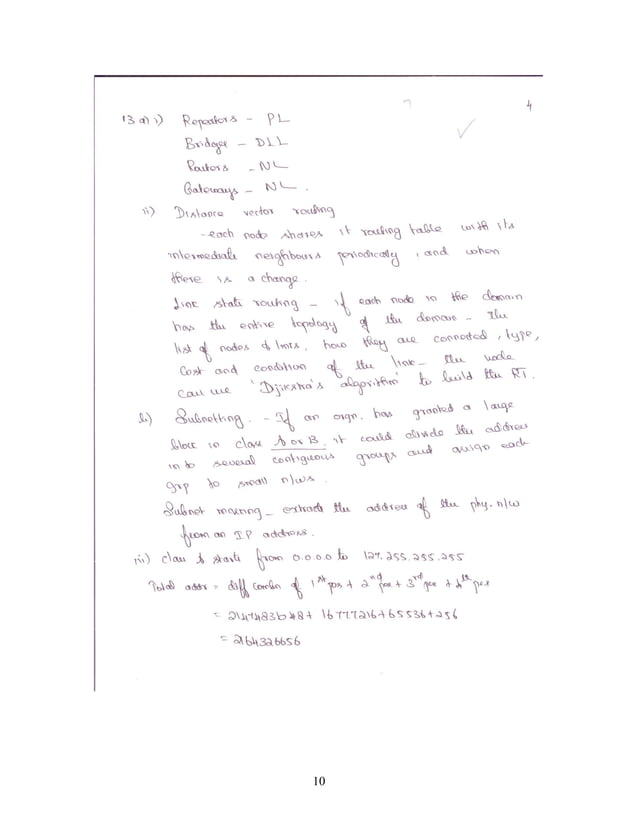 4
13 a) i) Repeators - PL
Bridges - DLL
Routers - NL
Gateways - NL.
ii) Distance vector routing
- each node shares it routing table with its
intermediate neighbours periodically, and when
there is a change.
Link state routing - if each node in the domain
has the entire topology of the domain - The
list of nodes & links, how they are connected, type,
Cost and condition of the link - The node
can use 'Djikstra's algorithm' to build the RT.
b) Subnetting. - If an orgn. has granted a large
block in class A or B. it could divide the address
into several contiguous groups and assign each
grp to small n/ws.
Subnet masking - extracts the address of the phy. n/w
from an IP address.
iii) class A starts from 0.0.0.0 to 127.255.255.255
Total addr = diff combn of 1st pos + 2nd pos + 3rd pos + 4th pos
= 2147483648 + 16777216 + 65536 + 256
= 2164326656
10